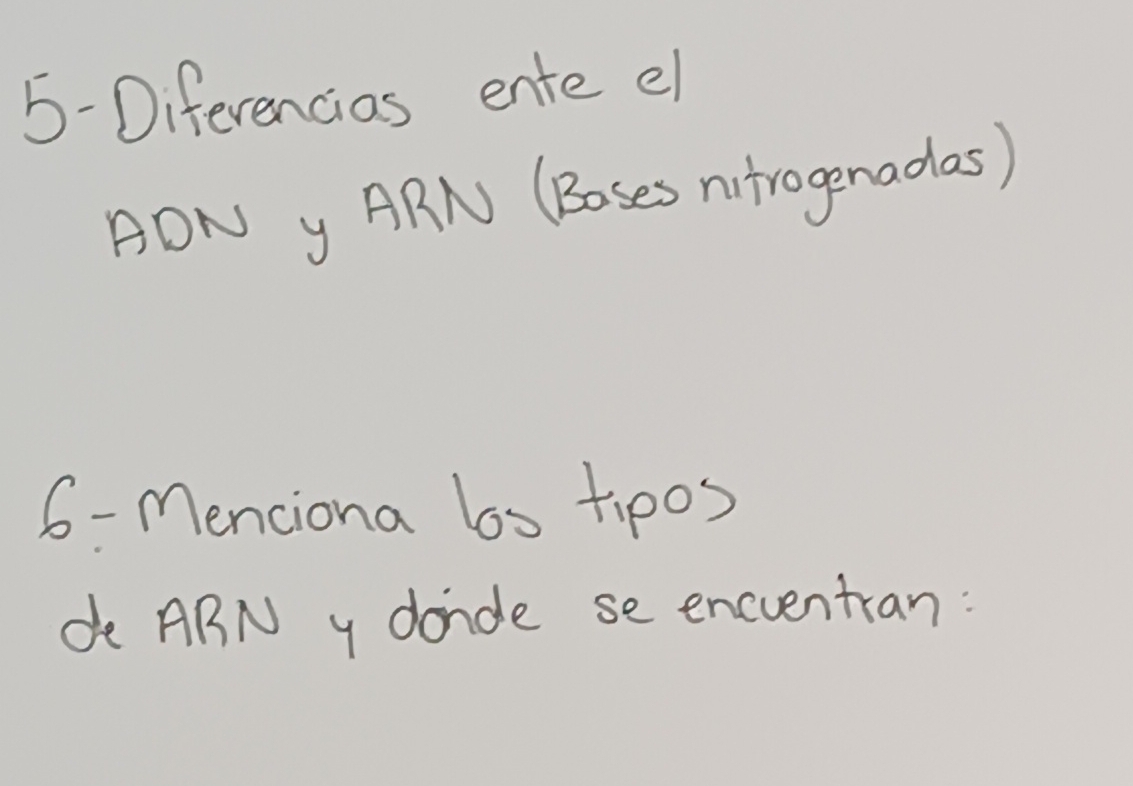 5-Diferencias ente el
ADN y ARN (Bases nitrogenadas)
6-Menciona los tipos
de ARN y dónde se encuentran: